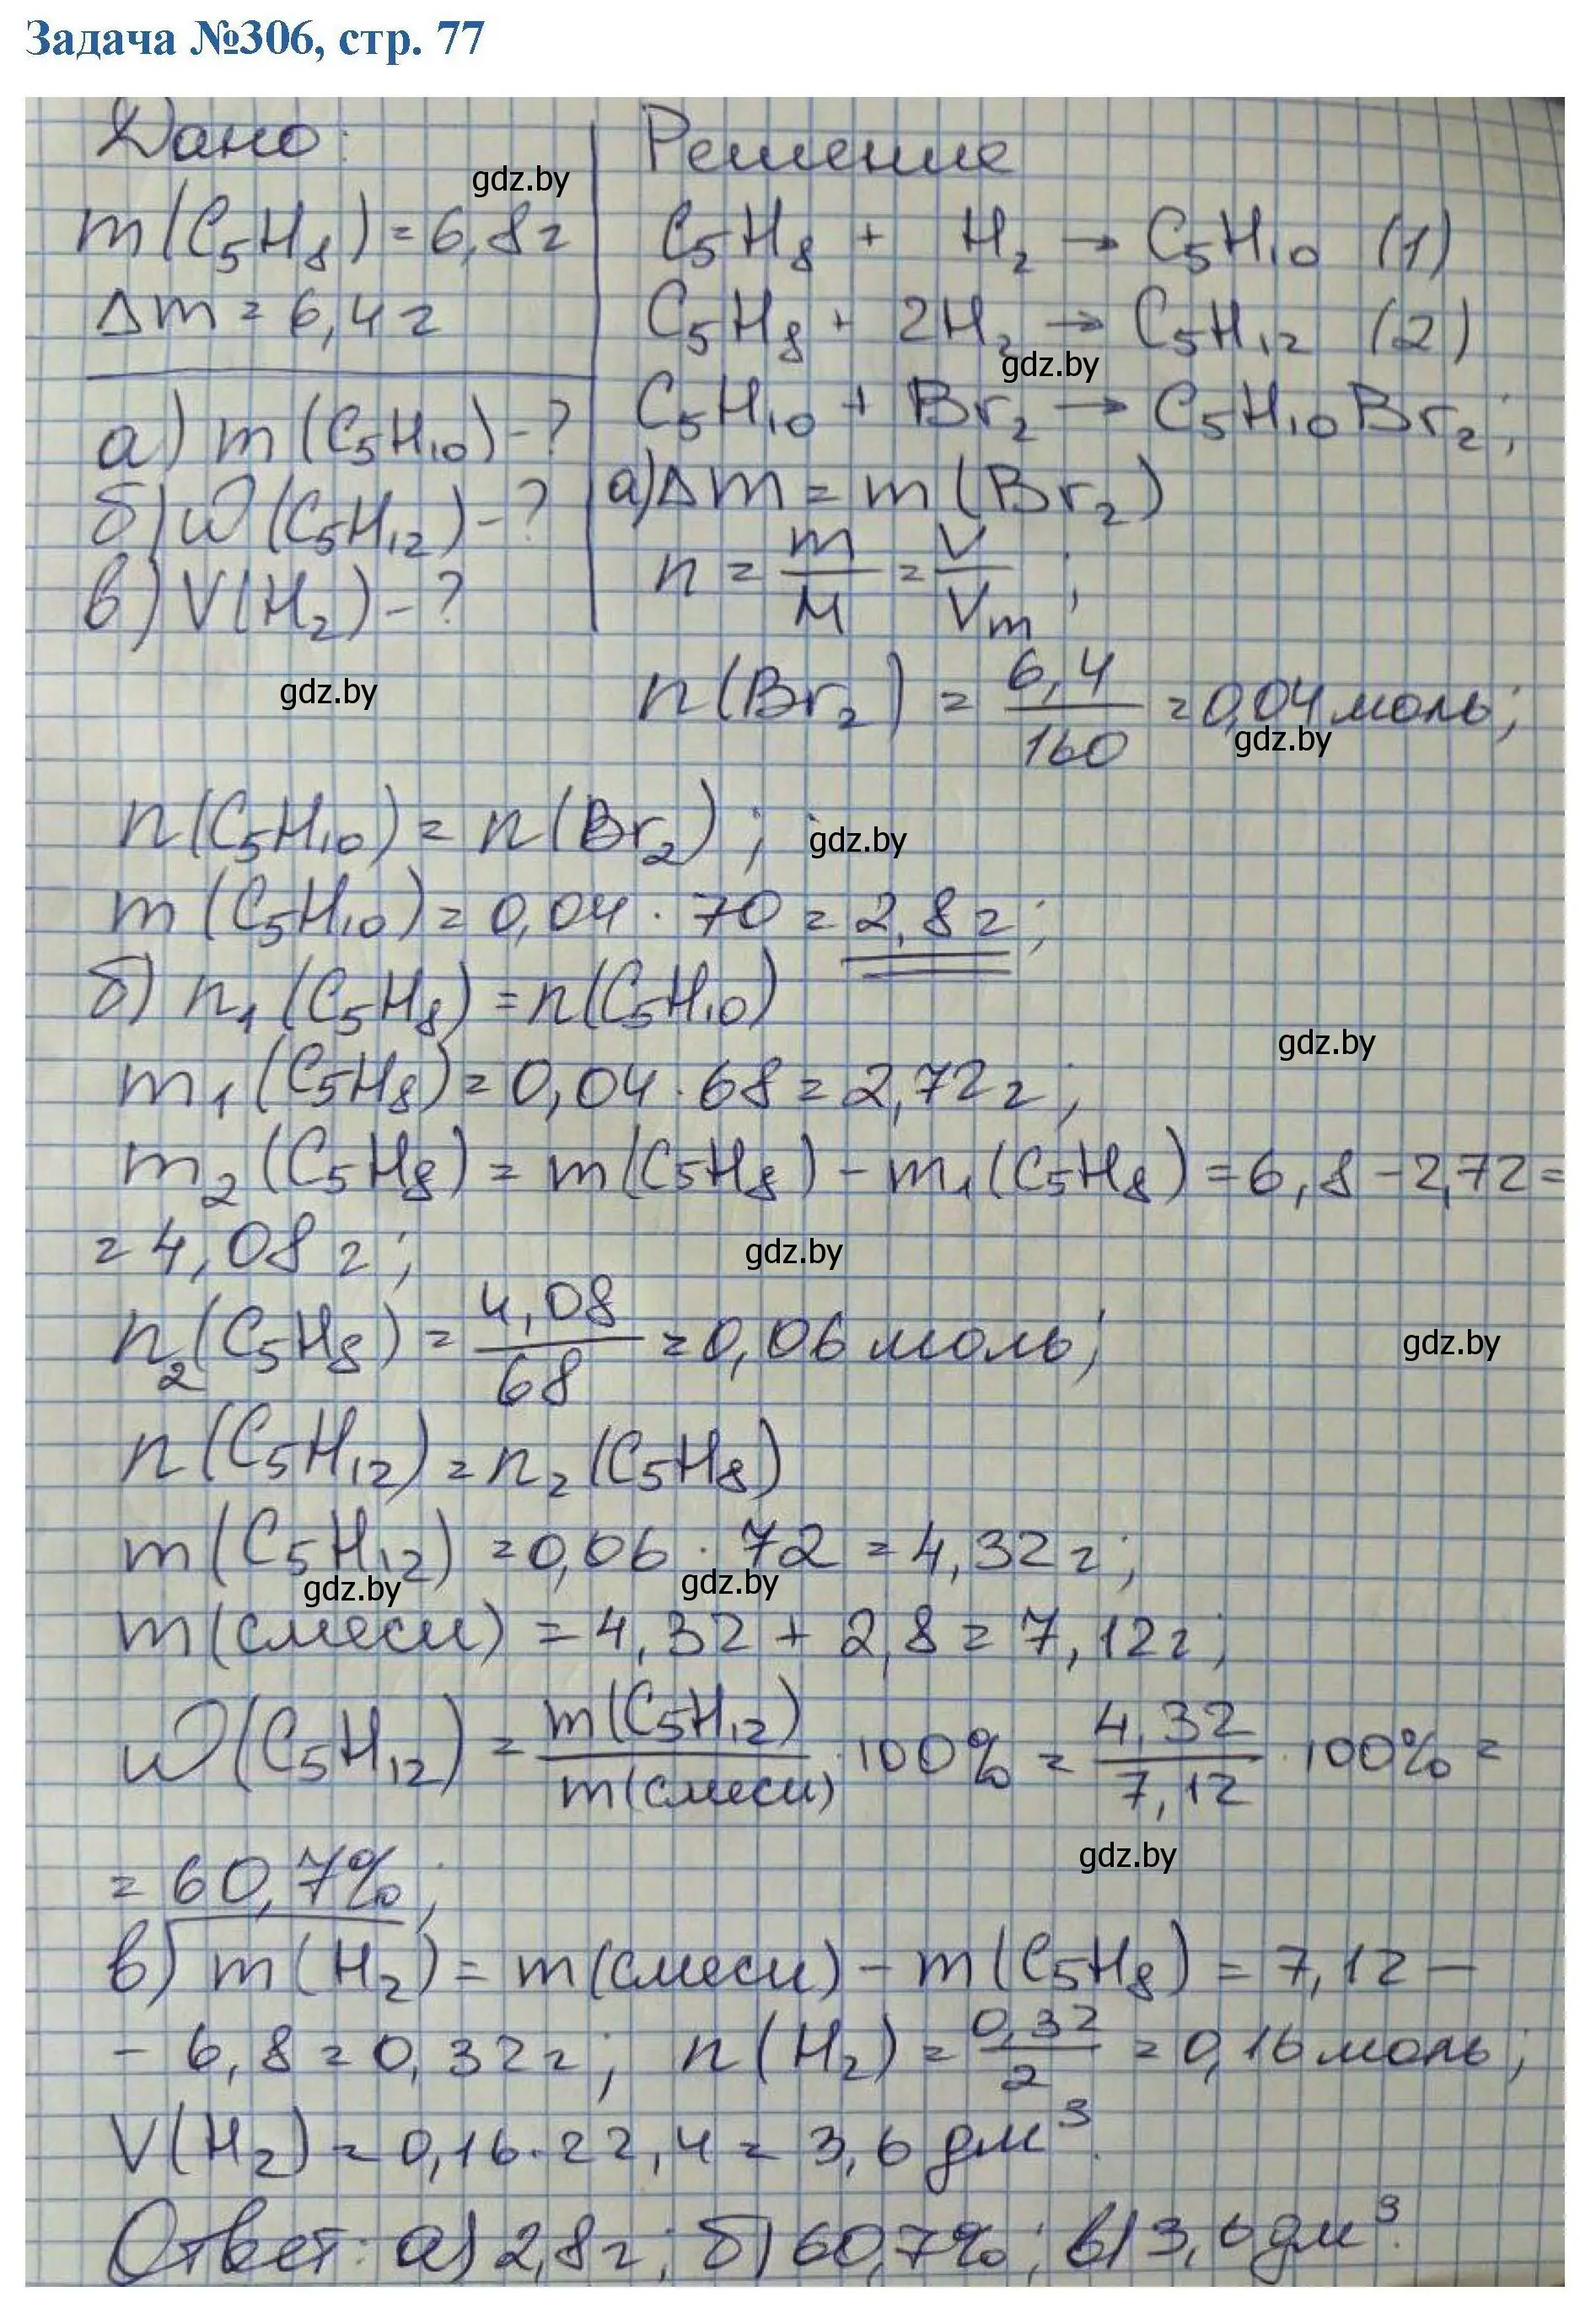 Задача №306, стр. 77
Дано:
gdz.by
m(C₅H₈) = 6,8г
Δm = 6,4г
а) m(C₅H₁₀) - ?
б) ω(C₅H₁₂) - ?
в) V(H₂) - ?
gdz.by
Решение
C₅H₈ + H₂ → C₅H₁₀ (1)
C₅H₈ + 2H₂ → C₅H₁₂ (2)
gdz.by
C₅H₁₀ + Br₂ → C₅H₁₀Br₂;
а) Δm = m(Br₂)
n = m/M = V/Vm;
n(Br₂) = 6,4/160 = 0,04 моль;
gdz.by
n(C₅H₁₀) = n(Br₂);
gdz.by
m(C₅H₁₀) = 0,04 · 70 = 2,8г;
б) n₁(C₅H₈) = n(C₅H₁₀)
gdz.by
m₁(C₅H₈) = 0,04 · 68 = 2,72г;
m₂(C₅H₈) = m(C₅H₈) - m₁(C₅H₈) = 6,8 - 2,72 =
= 4,08г;
gdz.by
n₂(C₅H₈) = 4,08/68 = 0,06 моль;
gdz.by
n(C₅H₁₂) = n₂(C₅H₈)
m(C₅H₁₂) = 0,06 · 72 = 4,32г;
gdz.by
gdz.by
m(смеси) = 4,32 + 2,8 = 7,12г;
ω(C₅H₁₂) = m(C₅H₁₂)/m(смеси) · 100% = 4,32/7,12 · 100% =
gdz.by
= 60,7%;
в) m(H₂) = m(смеси) - m(C₅H₈) = 7,12 -
- 6,8 = 0,32г; n(H₂) = 0,32/2 = 0,16 моль;
V(H₂) = 0,16 · 22,4 = 3,6 дм³.
Ответ: а) 2,8г; б) 60,7%; в) 3,6 дм³.